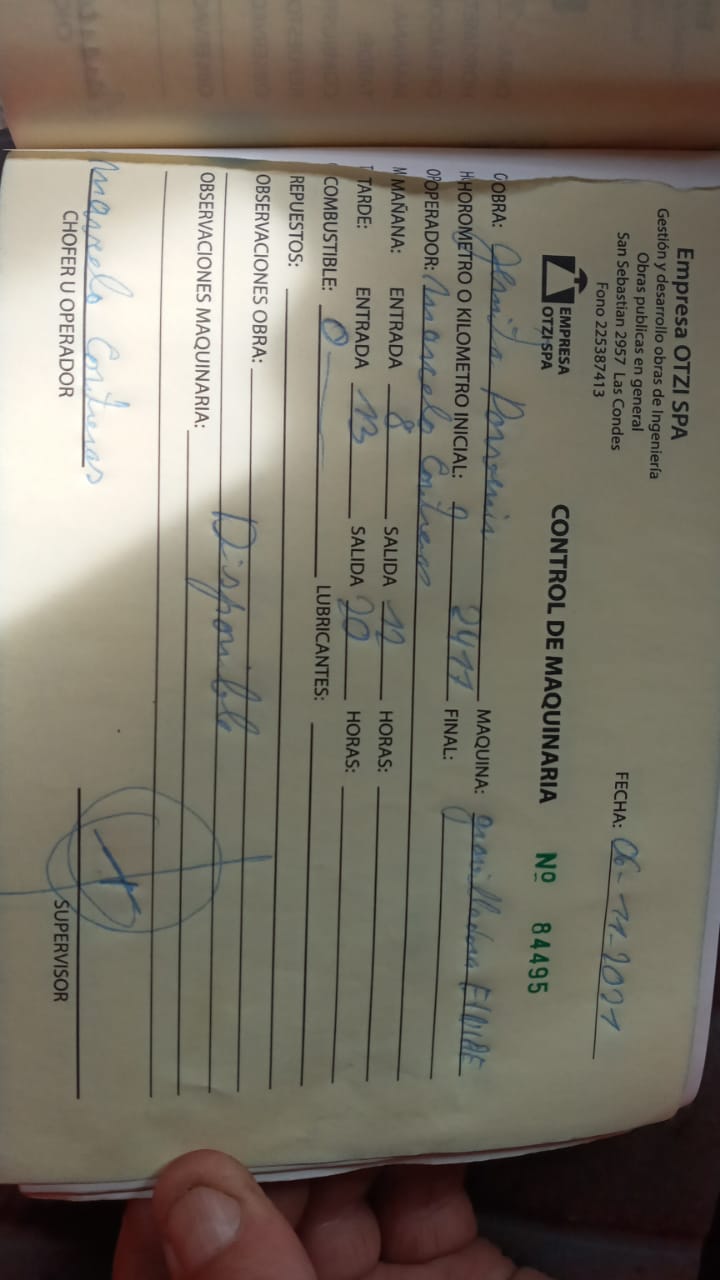 Empresa OTZI SPA
Gestión y desarrollo obras de Ingeniería
Obras publicas en general
San Sebastian 2957 Las Condes
Fono 225387413
EMPRESA
OTZI SPA
FECHA: 06-11-2021
CONTROL DE MAQUINARIA Nº 84495
OBRA: Porvenir MAQUINA: gravilladora
HOROMETRO O KILOMETRO INICIAL: 2411 FINAL:
OPERADOR: Marcelo Contreras
MAÑANA: ENTRADA 8 SALIDA 12 HORAS:
TARDE: ENTRADA 13 SALIDA 20 HORAS:
COMBUSTIBLE: 0 LUBRICANTES:
REPUESTOS:
OBSERVACIONES OBRA:
Disponible
OBSERVACIONES MAQUINARIA:
Marcelo Contreras
CHOFER U OPERADOR
SUPERVISOR